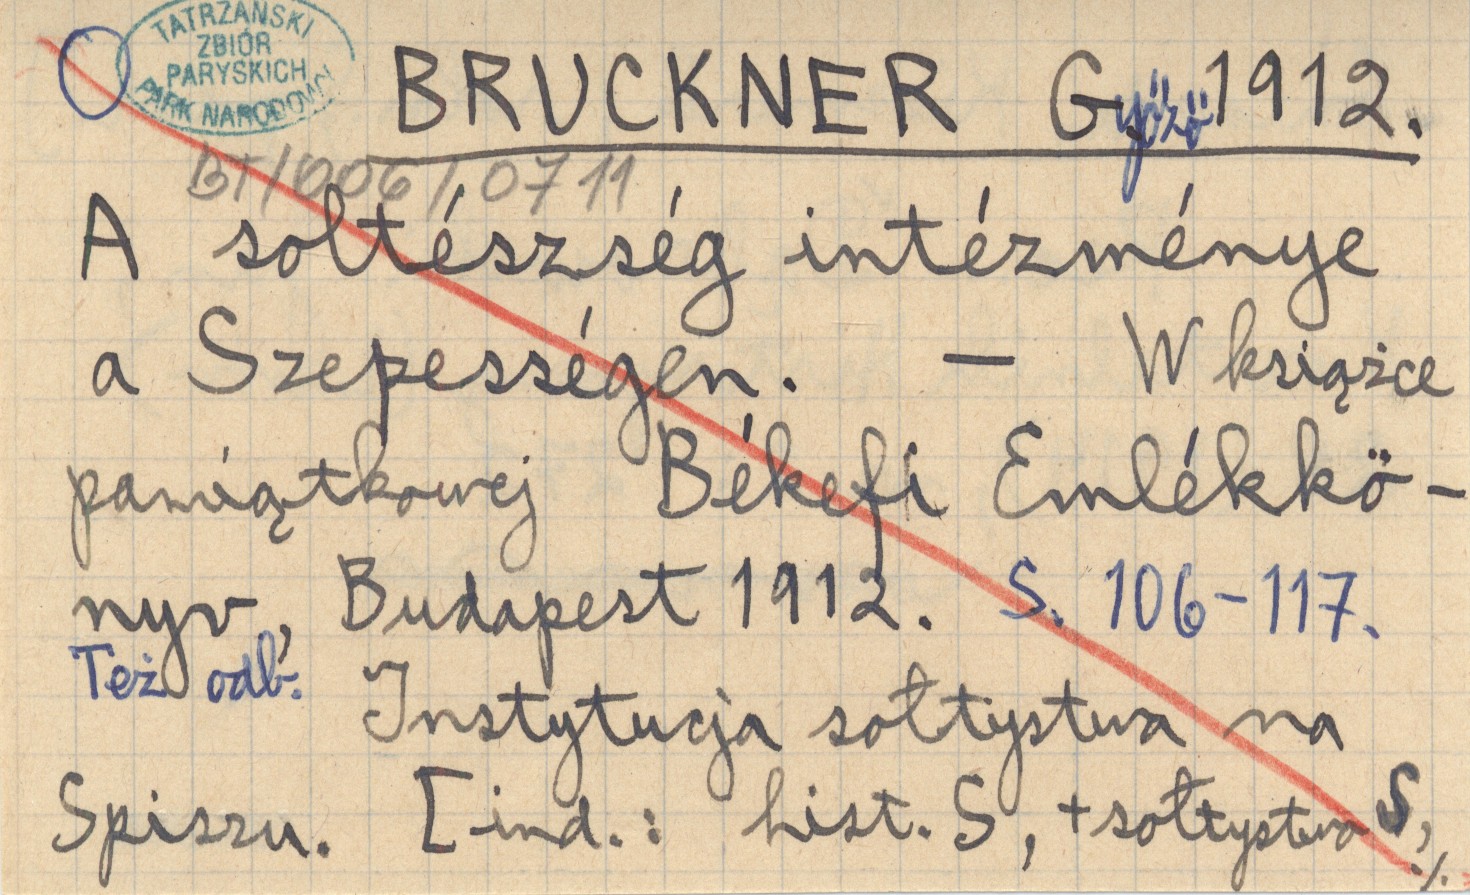 TATRZAŃSKI
ZBIÓR
PARYSKICH
PARK NARODOWY
BRUCKNER Győző 1912.
BT/006/0711
A soltészség intézménye
a Szepességen. — W książce
pamiątkowej Békefi Emlékkö-
nyv, Budapest 1912. S. 106-117.
Też odb.
Instytucja sołtystwa na
Spiszu. [ind.: hist. S, +sołtystwa S,
./.